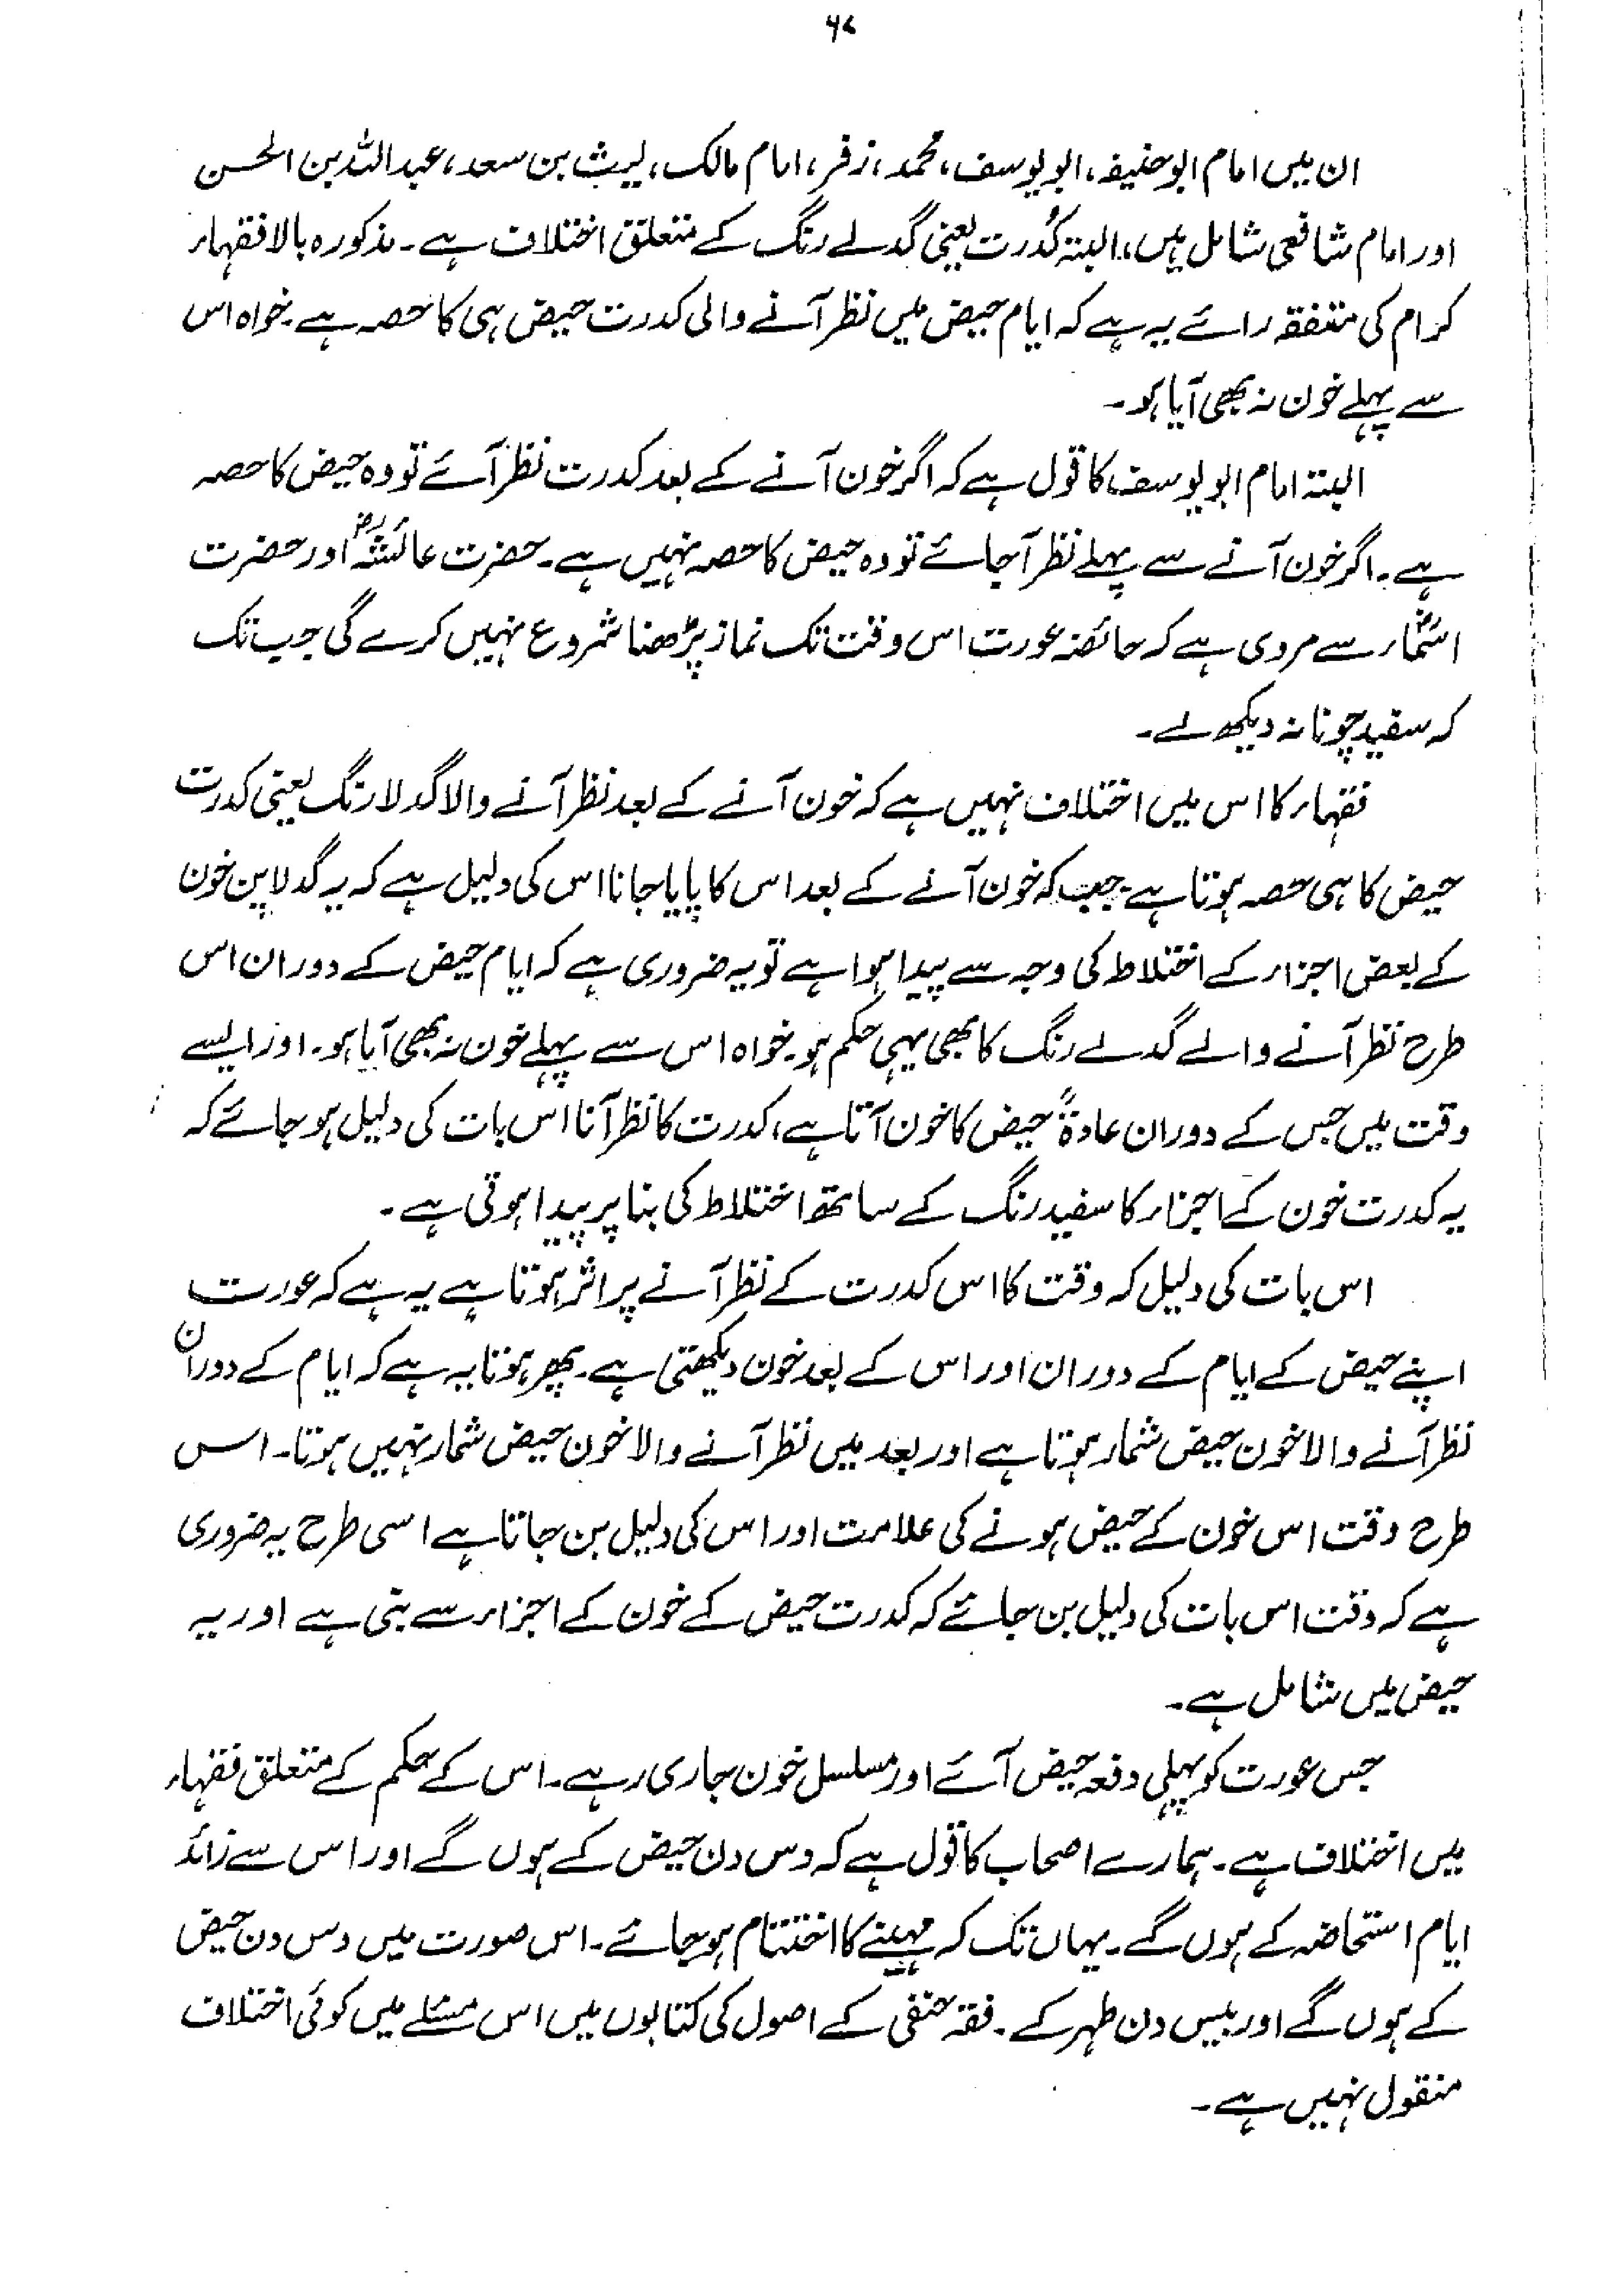 ۶۷
ان میں امام ابوحنیفہ، ابویوسف، محمد، زفر، امام مالک، لیث بن سعد، عبداللہ بن الحسن
اور امام شافعی شامل ہیں، البتہ کُدرت یعنی گدلے رنگ کے متعلق اختلاف ہے۔ مذکورہ بالا فقہاء
کرام کی متفقہ رائے یہ ہے کہ ایام حیض میں نظر آنے والی کدرت حیض ہی کا حصہ ہے۔ خواہ اس
سے پہلے خون نہ بھی آیا ہو۔
البتہ امام ابویوسف کا قول ہے کہ اگر خون آنے کے بعد کدرت نظر آئے تو وہ حیض کا حصہ
ہے۔ اگر خون آنے سے پہلے نظر آجائے تو وہ حیض کا حصہ نہیں ہے۔ حضرت عائشہؓ اور حضرت
اسمؓاء سے مروی ہے کہ حائضہ عورت اس وقت تک نماز پڑھنا شروع نہیں کرے گی جب تک
کہ سفید چونا نہ دیکھ لے۔
فقہاء کا اس میں اختلاف نہیں ہے کہ خون آنے کے بعد نظر آنے والا گدلا رنگ یعنی کدرت
حیض کا ہی حصہ ہوتا ہے۔ جب کہ خون آنے کے بعد اس کا پایا جانا اس کی دلیل ہے کہ یہ گدلا پن خون
کے بعض اجزاء کے اختلاط کی وجہ سے پیدا ہوا ہے تو یہ ضروری ہے کہ ایام حیض کے دوران اس
طرح نظر آنے والے گدلے رنگ کا بھی یہی حکم ہو۔ خواہ اس سے پہلے خون نہ بھی آیا ہو۔ اور ایسے
وقت میں جس کے دوران عادۃً حیض کا خون آتا ہے، کدرت کا نظر آنا اس بات کی دلیل ہو جائے کہ
یہ کدرت خون کے اجزاء کا سفید رنگ کے ساتھ اختلاط کی بنا پر پیدا ہوتی ہے۔
اس بات کی دلیل کہ وقت کا اس کدرت کے نظر آنے پر اثر ہوتا ہے یہ ہے کہ عورت
اپنے حیض کے ایام کے دوران اور اس کے بعد خون دیکھتی ہے۔ پھر ہوتا یہ ہے کہ ایام کے دوران
نظر آنے والا خون حیض شمار ہوتا ہے اور بعد میں نظر آنے والا خون حیض شمار نہیں ہوتا۔ اس
طرح وقت اس خون کے حیض ہونے کی علامت اور اس کی دلیل بن جاتا ہے اسی طرح یہ ضروری
ہے کہ وقت اس بات کی دلیل بن جائے کہ کدرت حیض کے خون کے اجزاء سے بنی ہے اور یہ
حیض میں شامل ہے۔
جس عورت کو پہلی دفعہ حیض آئے اور مسلسل خون جاری رہے۔ اس کے حکم کے متعلق فقہاء
میں اختلاف ہے۔ ہمارے اصحاب کا قول ہے کہ دس دن حیض کے ہوں گے اور اس سے زائد
ایام استحاضہ کے ہوں گے۔ یہاں تک کہ مہینے کا اختتام ہو جائے۔ اس صورت میں دس دن حیض
کے ہوں گے اور بیس دن طہر کے۔ فقہ حنفی کے اصول کی کتابوں میں اس مسئلے میں کوئی اختلاف
منقول نہیں ہے۔